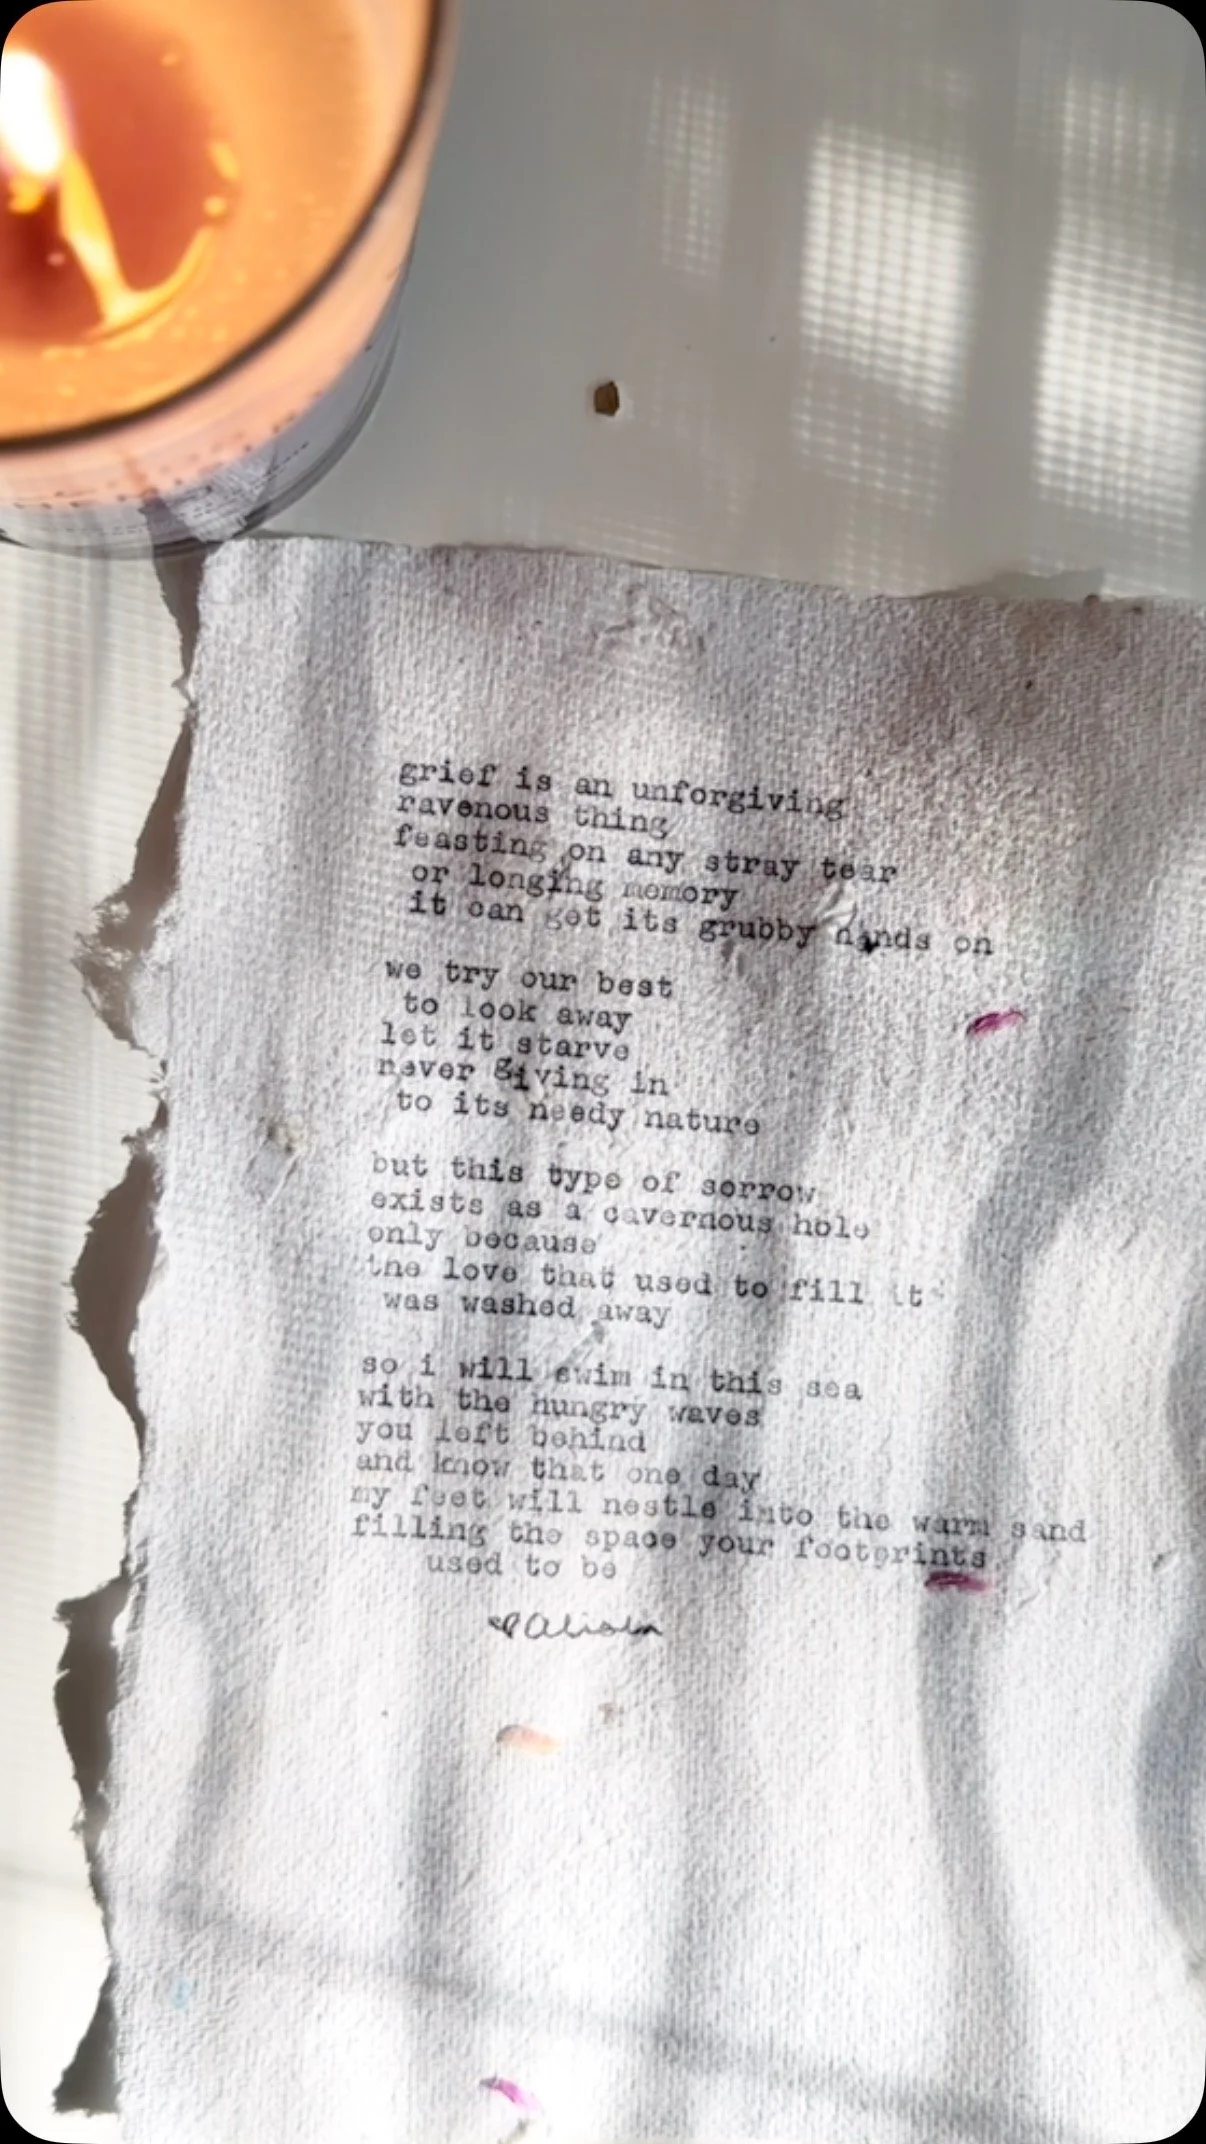 grief is an unforgiving
ravenous thing
feasting on any stray tear
or longing memory
it can get its grubby hands on
we try our best
to look away
let it starve
never giving in
to its needy nature
but this type of sorrow
exists as a cavernous hole
only because
the love that used to fill it
was washed away
so i will swim in this sea
with the hungry waves
you left behind
and know that one day
my feet will nestle into the warm sand
filling the space your footprints
used to be